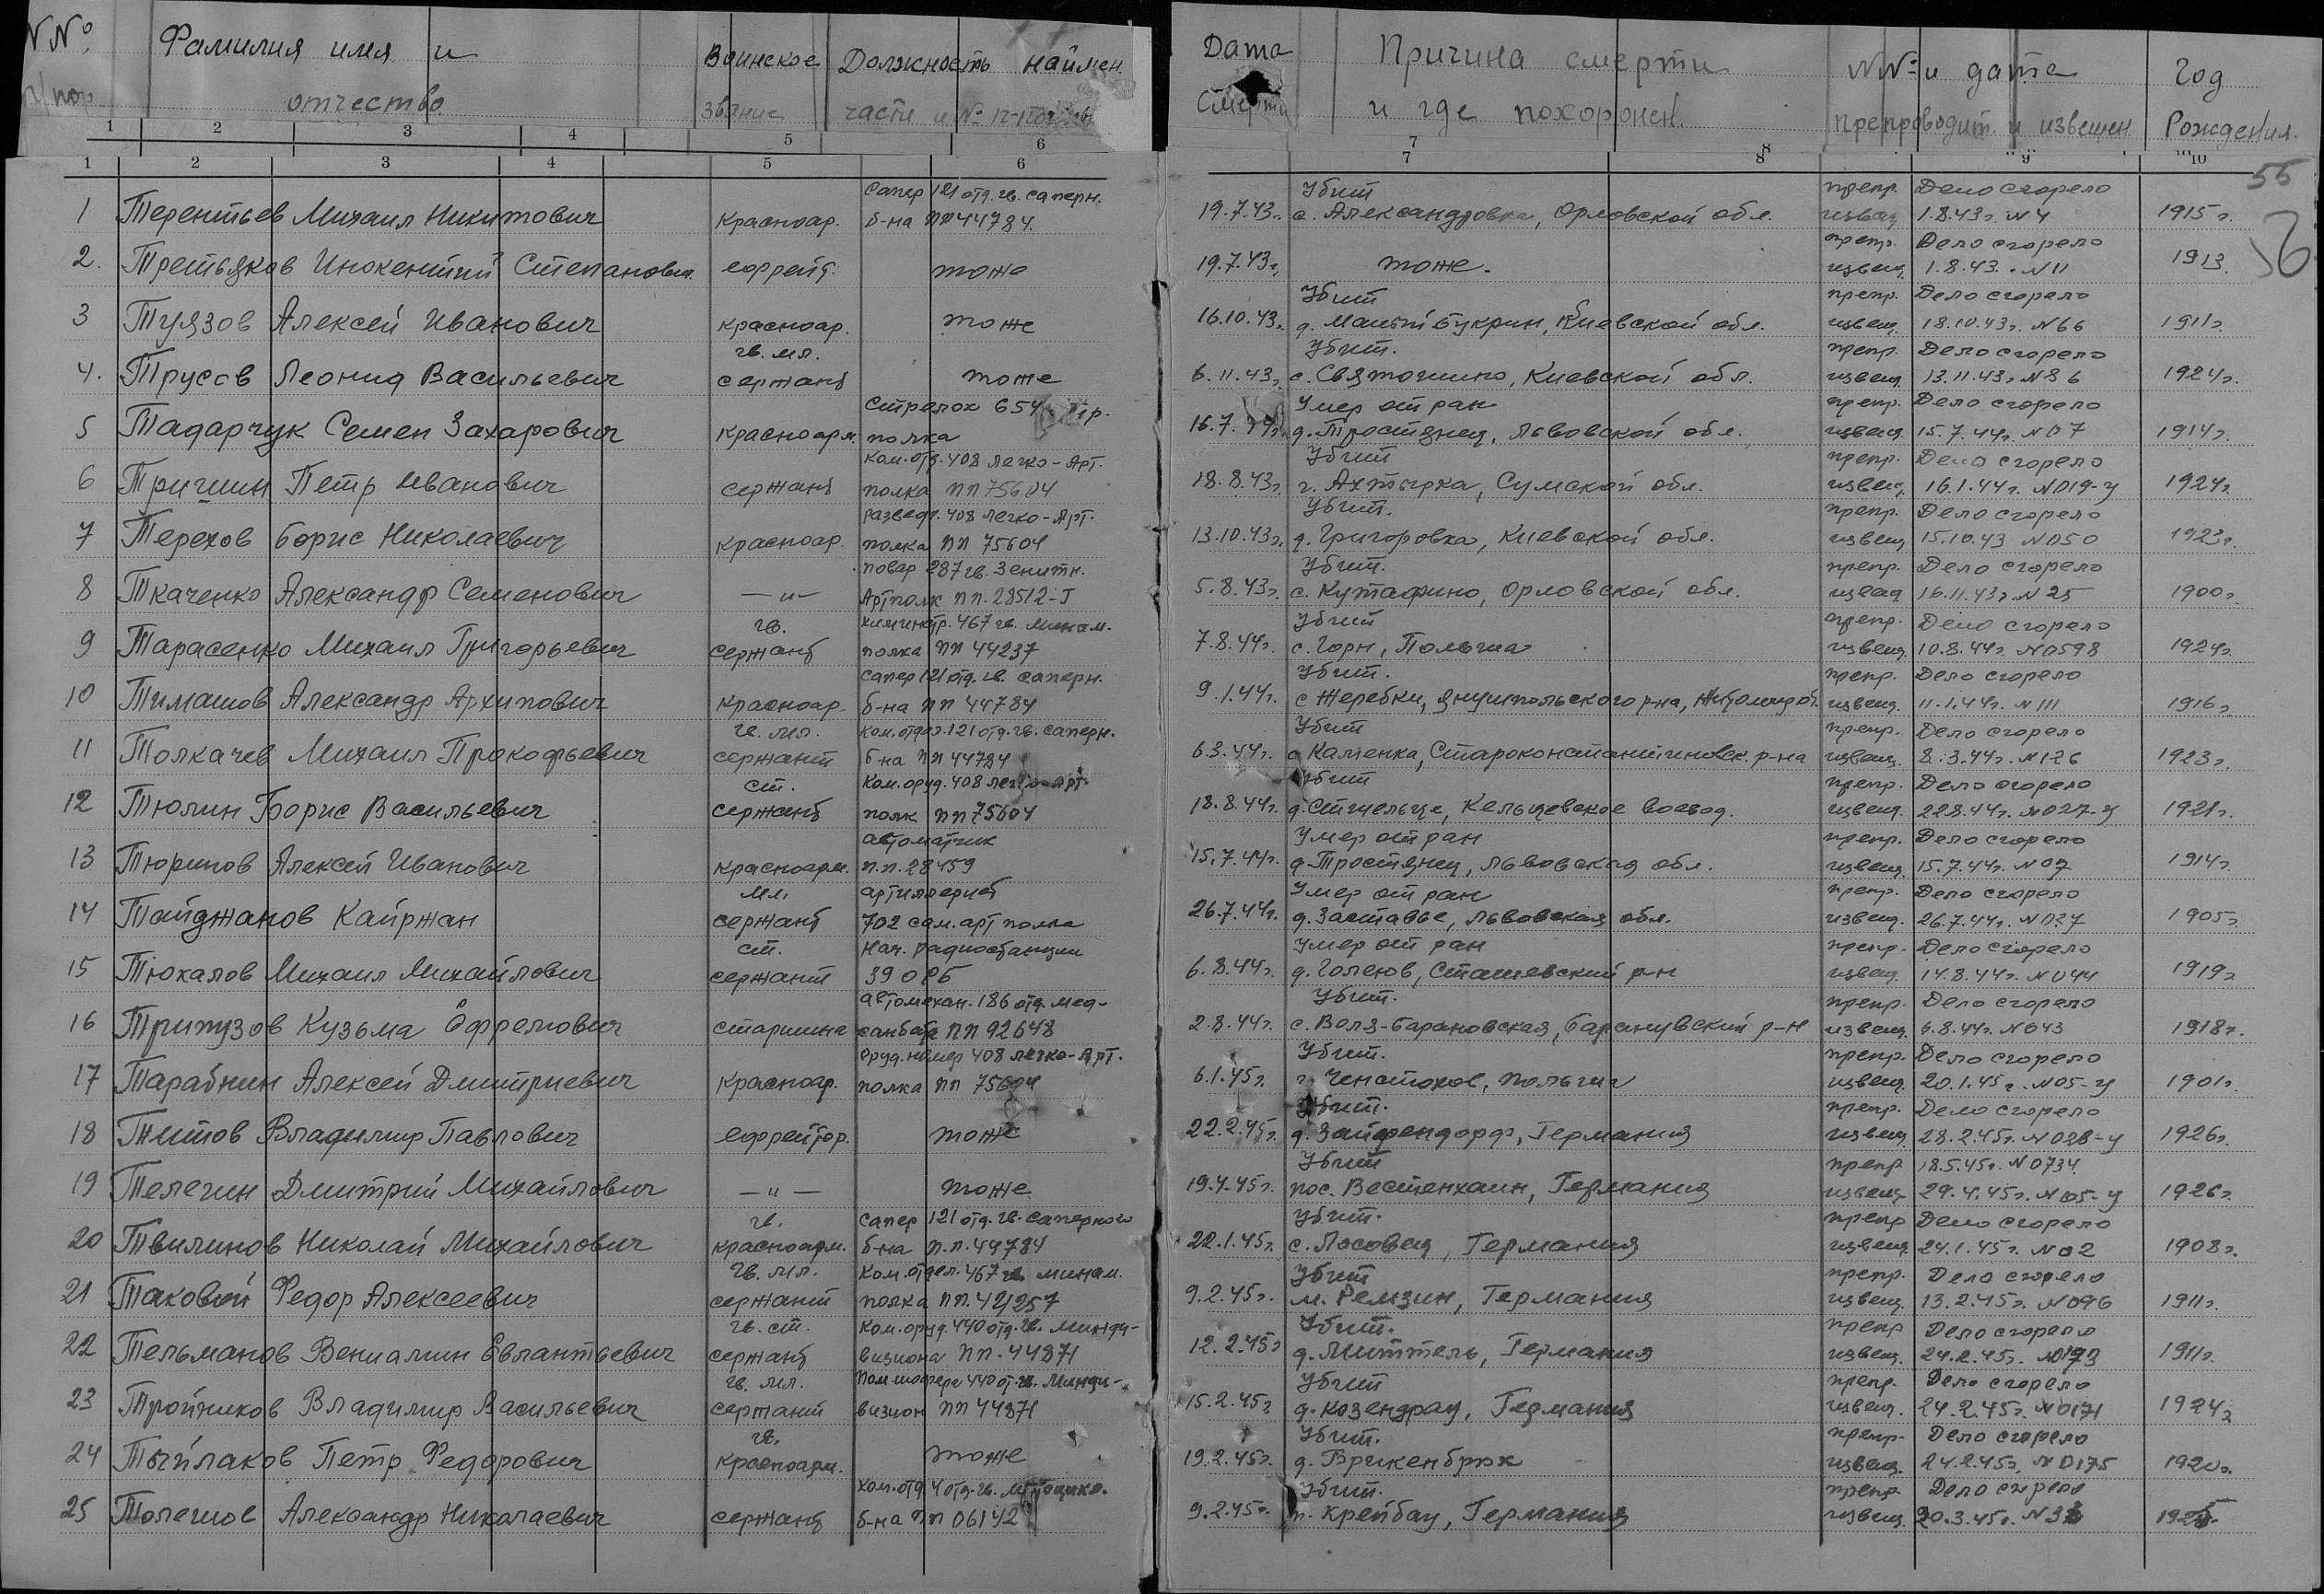 NNº Фамилия имя и Воинское Должность наймен. Дата Причина смерти NNº и дата Год
п/пор. отчество звание части и № смерти и где похоронен. препроводит. и извещен. Рождения.
1 2 3 4 5 6 7 8
1 2 3 4 5 6 7 8 9 10
55
56
Сапер 121 отд. гв. саперн. Убит препр. Дело сгорело
1 Терентьев Михаил Никитович Красноар. б-на пп 44784. 19.7.43г. с. Александровка, Орловской обл. извещ. 1.8.43г. N 4 1915г.
препр. Дело сгорело
2. Третьяков Инокентий Степанович ефрейт. тоже 19.7.43г. тоже. извещ. 1.8.43. N 11 1913
Убит препр. Дело сгорело
3 Туязов Алексей Иванович красноар. тоже 16.10.43г. д. Малый Букрин, Киевской обл. извещ. 18.10.43г. N 66 1911г.
гв. мл. Убит. препр. Дело сгорело
4. Трусов Леонид Васильевич сержант тоже 6.11.43г. с. Святошино, Киевской обл. извещ. 13.11.43г. N 86 1924г.
Стрелок 654 Умер от ран препр. Дело сгорело
5 Тадарчук Семен Захарович красноарм. полка 16.7.44г. д. Тростянец, Львовской обл. извещ. 15.7.44г. N 07 1914г.
ком. отд. 408 легко-Арт. Убит препр. Дело сгорело
6 Тришин Петр Иванович сержант полка пп 75604 18.8.43г. г. Ахтырка, Сумской обл. извещ. 16.1.44г. N 019-у 1924г.
развед. 408 легко-Арт. Убит. препр. Дело сгорело
7 Терехов Борис Николаевич красноар. полка пп 75604 13.10.43г. д. Григоровка, Киевской обл. извещ. 15.10.43 N 050 1923г.
повар 287 гв. Зенитн. Убит. препр. Дело сгорело
8 Ткаченко Александр Семенович —"— Артполк пп. 28512-Т 5.8.43г. с. Кутафино, Орловской обл. извещ. 16.11.43г. N 25 1900г.
гв. химинстр. 467 гв. Мином. Убит препр. Дело сгорело
9 Тарасенко Михаил Григорьевич сержант полка пп 44237 7.8.44г. с. Горн, Польша извещ. 10.8.44г. N 0598 1924г.
сапер 121 отд. гв. саперн. Убит. препр. Дело сгорело
10 Тимашов Александр Архипович красноар. б-на пп 44784 9.1.44г. с Жеребки, Янушпольского р-на, Житомир об. извещ. 11.1.44г. N 111 1916г.
гв. мл. ком. отдел. 121 отд. гв. саперн. Убит препр. Дело сгорело
11 Толкачев Михаил Прокофьевич сержант б-на пп 44784 6.3.44г. с Каменка, Староконстантиновск. р-на извещ. 8.3.44г. N 126 1923г.
ст. Ком. оруд. 408 легко-Арт. Убит препр. Дело сгорело
12 Тюлин Борис Васильевич сержант полк пп 75604 18.8.44г. д. Стшельце, Кельцевское воевод. извещ. 22.8.44г. N 027-у 1921г.
автоматчик Умер от ран препр. Дело сгорело
13 Тюринов Алексей Иванович красноарм. п.п. 28459 15.7.44г. д. Тростянец, Львовская обл. извещ. 15.7.44г. N 07 1914г.
мл. артиллерист Умер от ран препр. Дело сгорело
14 Тайджанов Кайржан сержант 702 сам. арт полка 26.7.44г. д. Заставье, Львовская обл. извещ. 26.7.44г. N 027 1905г.
ст. Нач. радиостанции Умер от ран препр. Дело сгорело
15 Тюкалов Михаил Михайлович сержант 39 ОРБ 6.8.44г. д. Голеюв, Сташевский р-н извещ. 14.8.44г. N 044 1919г.
автомехан. 186 отд. мед- Убит. препр. Дело сгорело
16 Трипузов Кузьма Ефремович старшина санбат пп 92648 2.8.44г. с. Воля-Барановская, Барануvский р-н извещ. 6.8.44г. N 043 1918г.
оруд. номер 408 легко-Арт. Убит. препр. Дело сгорело
17 Тарабнин Алексей Дмитриевич красноар. полка пп 75604 6.1.45г. г. Ченстохов, Польши извещ. 20.1.45г. N 05-у 1901г.
Убит. препр. Дело сгорело
18 Титов Владимир Павлович ефрейтор. тоже 22.2.45г. д. Зайфендорф, Германия извещ. 28.2.45г. N 028-у 1926г.
Убит препр 18.5.45г. N 0734
19 Телегин Дмитрий Михайлович —"— тоже 19.4.45г. пос. Вестенхаин, Германия извещ. 29.4.45г. N 105-у 1926г.
гв. сапер 121 отд. гв. саперного Убит. препр Дело сгорело
20 Твилинов Николай Михайлович красноарм. б-на п.п. 44784 22.1.45г. с. Лосовец, Германия извещ. 24.1.45г. N 02 1908г.
гв. мл. Ком. отдел. 467 гв минам. Убит препр. Дело сгорело
21 Таковой Федор Алексеевич сержант полка пп. 44257 9.2.45г. м. Ремзин, Германия извещ. 13.2.45г. N 096 1911г.
гв. ст. Ком. оруд. 440 отд. гв. Минди- Убит. препр Дело сгорело
22 Тельманов Вениамин Евлантьевич сержант визиона пп. 44871 12.2.45г д. Миттель, Германия извещ. 24.2.45г. N 0173 1911г.
гв. мл. Пом шофера 440 от. гв. Минди- Убит препр. Дело сгорело
23 Тройников Владимир Васильевич сержант визион пп 44871 15.2.45г д. Козендрау, Германия извещ. 24.2.45г. N 0171 1924г
гв. Убит. препр. Дело сгорело
24 Тычлаков Петр Федорович красноарм. тоже 19.2.45г. д. Врикенбрюк извещ. 24.2.45г. N 0175 1920г.
ком. отд 4 отд. гв. Убит. препр Дело сгорело
25 Толегшов Александр Николаевич сержант б-на пп 06142 9.2.45г. п. Крейбау, Германия извещ. 20.3.45г.